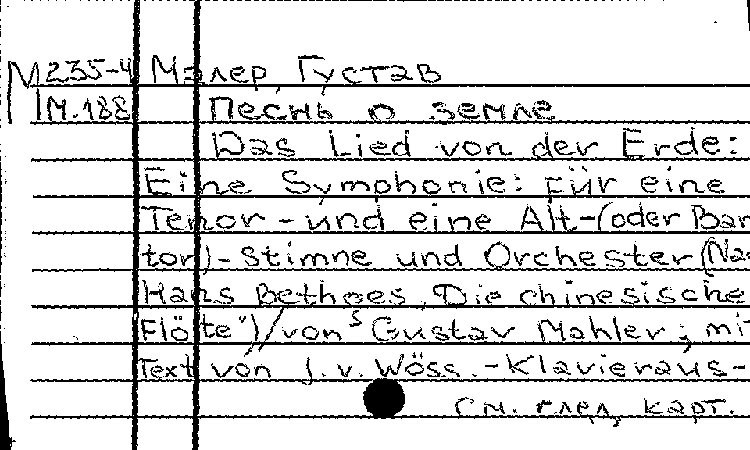 М235-4 Малер, Густав
М.188 Песнь о земле
Das Lied von der Erde:
Eine Symphonie: für eine
Tenor-und eine Alt-(oder Bari
ton)-Stimne und Orchester (Na
Hans Bethges „Die chinesische
Flöte")/von Gustav Mahler; mi
Text von J. v. Wöss.-Klavieraus-
См. след. карт.